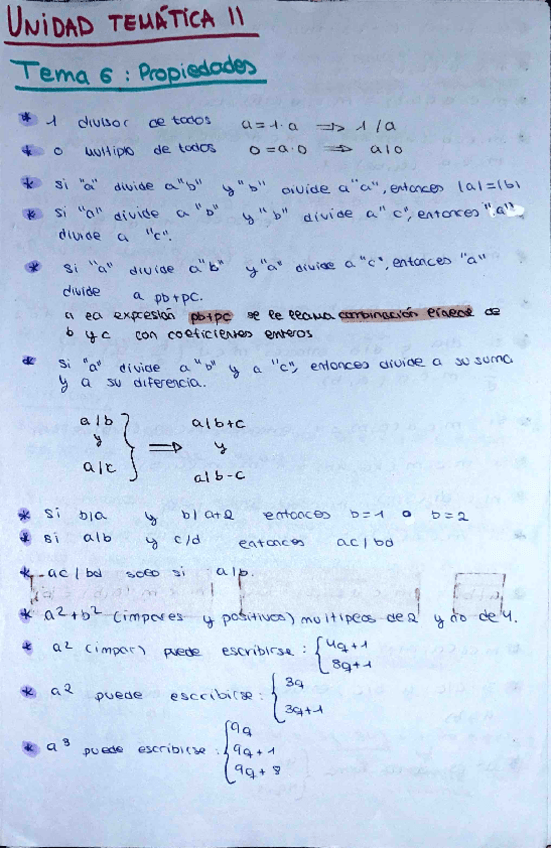 UNIDAD TEMÁTICA 11
Tema 6: Propiedades
* 1 divisor de todos a=1·a ⟹ 1/a
* 0 múltiplo de todos 0=a·0 ⟹ a|0
* Si "a" divide a "b" y "b" divide a "a", entonces |a|=|b|
* Si "a" divide a "b" y "b" divide a "c", entonces "a"
divide a "c".
* Si "a" divide a "b" y "a" divide a "c", entonces "a"
divide a pb+pc.
a la expresión pb+pc se le llama combinación lineal de
b y c con coeficientes enteros
* Si "a" divide a "b" y a "c", entonces divide a su suma
y a su diferencia.
a/b a/b+c
y ⟹ y
a/c a/b-c
* Si b/a y b/a+2 entonces b=1 o b=2
* Si a/b y c/d entonces ac/bd
* ac/bd solo si a/b.
* a²+b² (impares y positivos) múltiplos de 2 y no de 4.
* a² (impar) puede escribirse: { 4q+1
8q+1
* a² puede escribirse: { 3q
3q+1
* a³ puede escribirse: { 9q
9q+1
9q+8